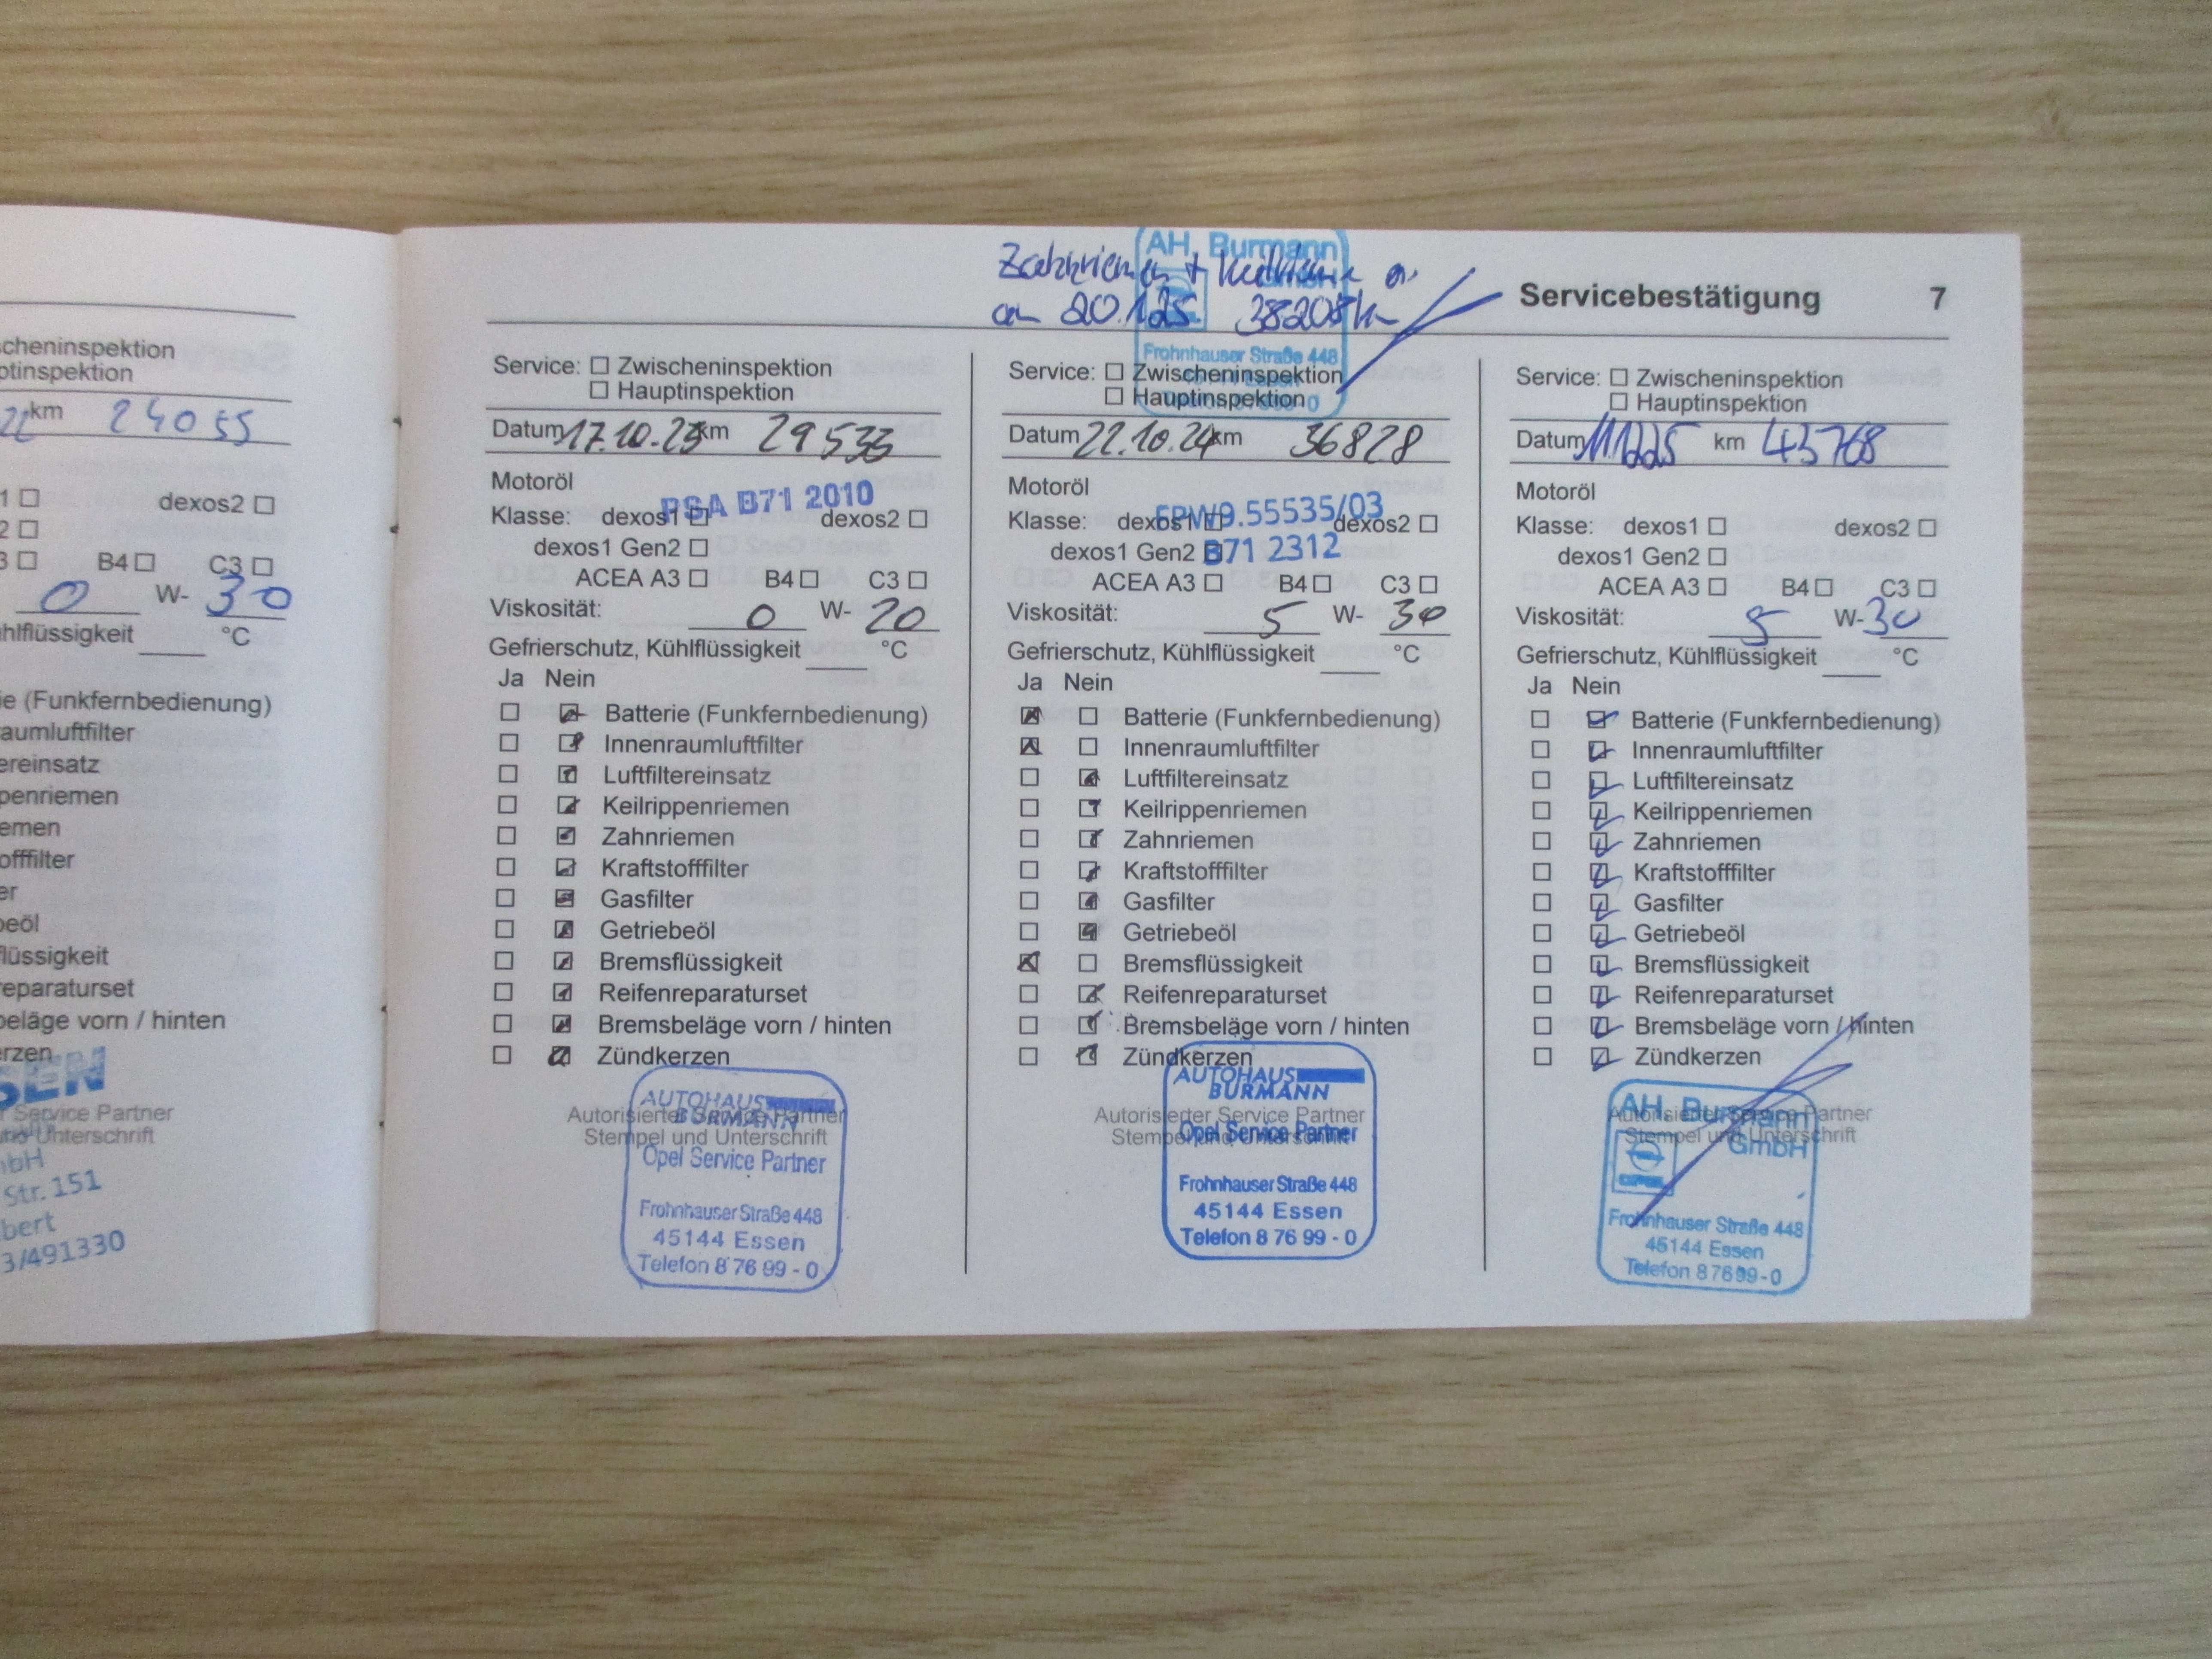 scheninspektion
ptinspektion
km 24055
1 ☐ dexos2 ☐
2 ☐
3 ☐ B4 ☐ C3 ☐
0 W- 30
hlflüssigkeit ____ °C
ie (Funkfernbedienung)
aumluftfilter
ereinsatz
penriemen
emen
offfilter
er
beöl
flüssigkeit
reparaturset
beläge vorn / hinten
erzen
SEN
r Service Partner
und Unterschrift
mbH
Str. 151
bert
3/491330
Zahnriemen +
am 20.1.25 38208 km
AH. Burmann
GmbH
Frohnhauser Straße 448
Servicebestätigung 7
Service: ☐ Zwischeninspektion
☐ Hauptinspektion
Datum 17.10.23 km 29533
Motoröl
PSA B71 2010
Klasse: dexos1 ☐ dexos2 ☐
dexos1 Gen2 ☐
ACEA A3 ☐ B4 ☐ C3 ☐
Viskosität: 0 W- 20
Gefrierschutz, Kühlflüssigkeit ____ °C
Ja Nein
☐ ☑ Batterie (Funkfernbedienung)
☐ ☑ Innenraumluftfilter
☐ ☑ Luftfiltereinsatz
☐ ☑ Keilrippenriemen
☐ ☑ Zahnriemen
☐ ☑ Kraftstofffilter
☐ ☑ Gasfilter
☐ ☑ Getriebeöl
☐ ☑ Bremsflüssigkeit
☐ ☑ Reifenreparaturset
☐ ☑ Bremsbeläge vorn / hinten
☐ ☑ Zündkerzen
Autorisierter Service Partner
Stempel und Unterschrift
AUTOHAUS
BURMANN
Opel Service Partner
Frohnhauser Straße 448
45144 Essen
Telefon 8 76 99 - 0
Service: ☐ Zwischeninspektion
☐ Hauptinspektion
Datum 22.10.24 km 36828
Motoröl
FPW9.55535/03
Klasse: dexos1 ☐ dexos2 ☐
dexos1 Gen2 ☐ B71 2312
ACEA A3 ☐ B4 ☐ C3 ☐
Viskosität: 5 W- 30
Gefrierschutz, Kühlflüssigkeit ____ °C
Ja Nein
☒ ☐ Batterie (Funkfernbedienung)
☒ ☐ Innenraumluftfilter
☐ ☑ Luftfiltereinsatz
☐ ☑ Keilrippenriemen
☐ ☑ Zahnriemen
☐ ☑ Kraftstofffilter
☐ ☑ Gasfilter
☐ ☑ Getriebeöl
☒ ☐ Bremsflüssigkeit
☐ ☑ Reifenreparaturset
☐ ☑ Bremsbeläge vorn / hinten
☐ ☑ Zündkerzen
Autorisierter Service Partner
Stempel und Unterschrift
AUTOHAUS
BURMANN
Opel Service Partner
Frohnhauser Straße 448
45144 Essen
Telefon 8 76 99 - 0
Service: ☐ Zwischeninspektion
☐ Hauptinspektion
Datum km 43768
Motoröl
Klasse: dexos1 ☐ dexos2 ☐
dexos1 Gen2 ☐
ACEA A3 ☐ B4 ☐ C3 ☐
Viskosität: 5 W- 30
Gefrierschutz, Kühlflüssigkeit ____ °C
Ja Nein
☐ ☑ Batterie (Funkfernbedienung)
☐ ☑ Innenraumluftfilter
☐ ☑ Luftfiltereinsatz
☐ ☑ Keilrippenriemen
☐ ☑ Zahnriemen
☐ ☑ Kraftstofffilter
☐ ☑ Gasfilter
☐ ☑ Getriebeöl
☐ ☑ Bremsflüssigkeit
☐ ☑ Reifenreparaturset
☐ ☑ Bremsbeläge vorn / hinten
☐ ☑ Zündkerzen
Autorisierter Service Partner
Stempel und Unterschrift
AH. Burmann
GmbH
OPEL
Frohnhauser Straße 448
45144 Essen
Telefon 8 76 99 - 0